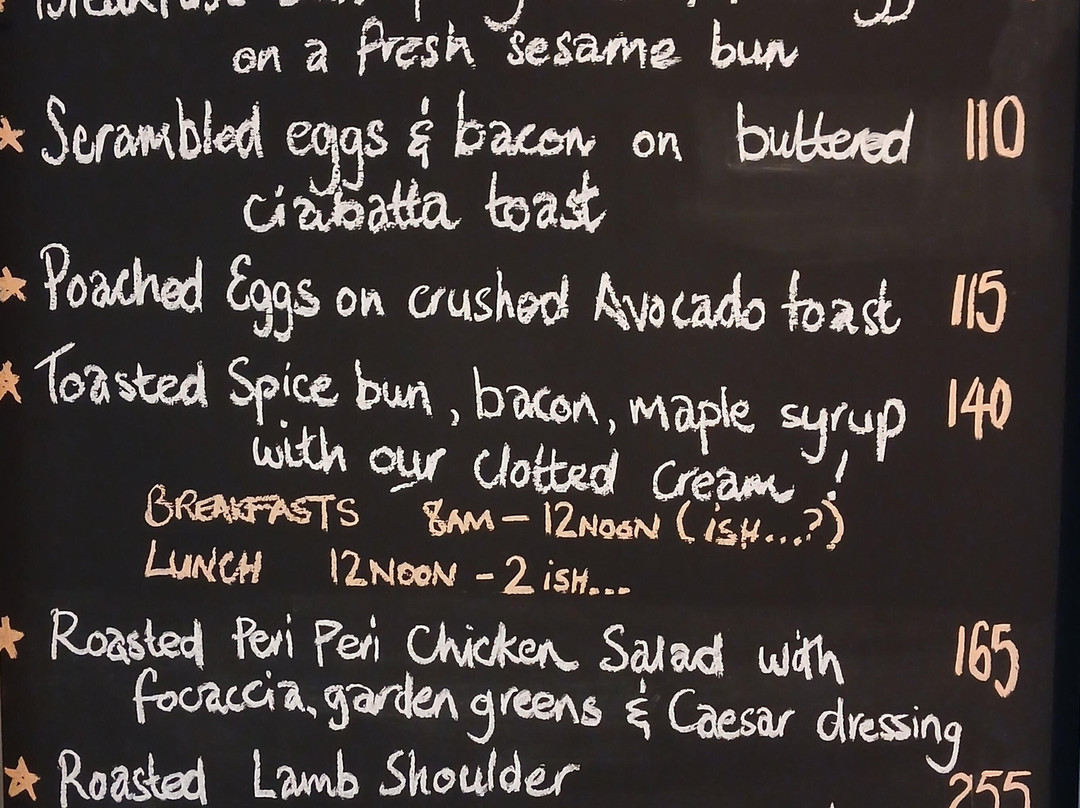 on a fresh sesame bun
Scrambled eggs & bacon on buttered 110
ciabatta toast
Poached Eggs on crushed Avocado toast 115
Toasted Spice bun, bacon, maple syrup 140
with our clotted cream!
BREAKFASTS 8AM - 12NOON (ISH...?)
LUNCH 12NOON - 2 ISH...
Roasted Peri Peri Chicken Salad with 165
focaccia, garden greens & Caesar dressing
Roasted Lamb Shoulder 255